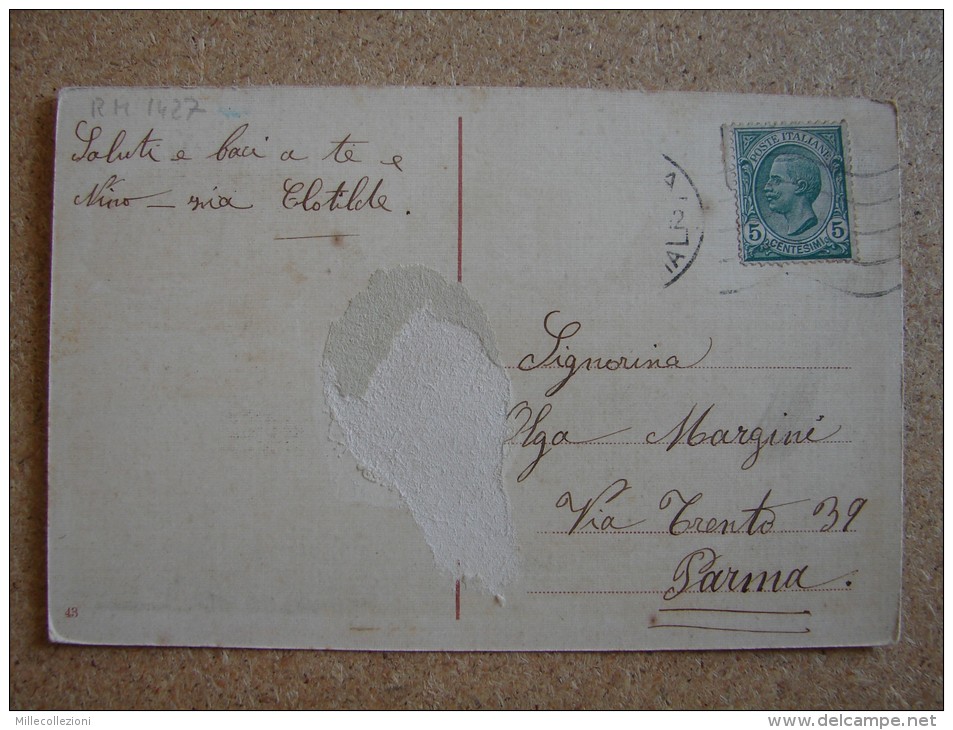 RM 1427
Saluti e baci a te e
Nino - zia Clotilde.
POSTE ITALIANE
5 5
CENTESIMI
Signorina
Olga Margini
Via Trento 39
Parma.
43
Millecollezioni
http://www.delcampe.net